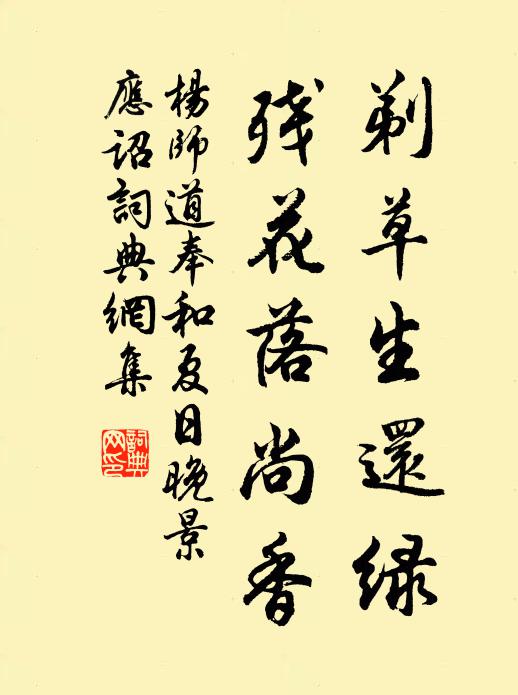 剃草生還綠
残花落尚香
楊師道奉和夏日晚景
應詔詞典網集
詞典
网印